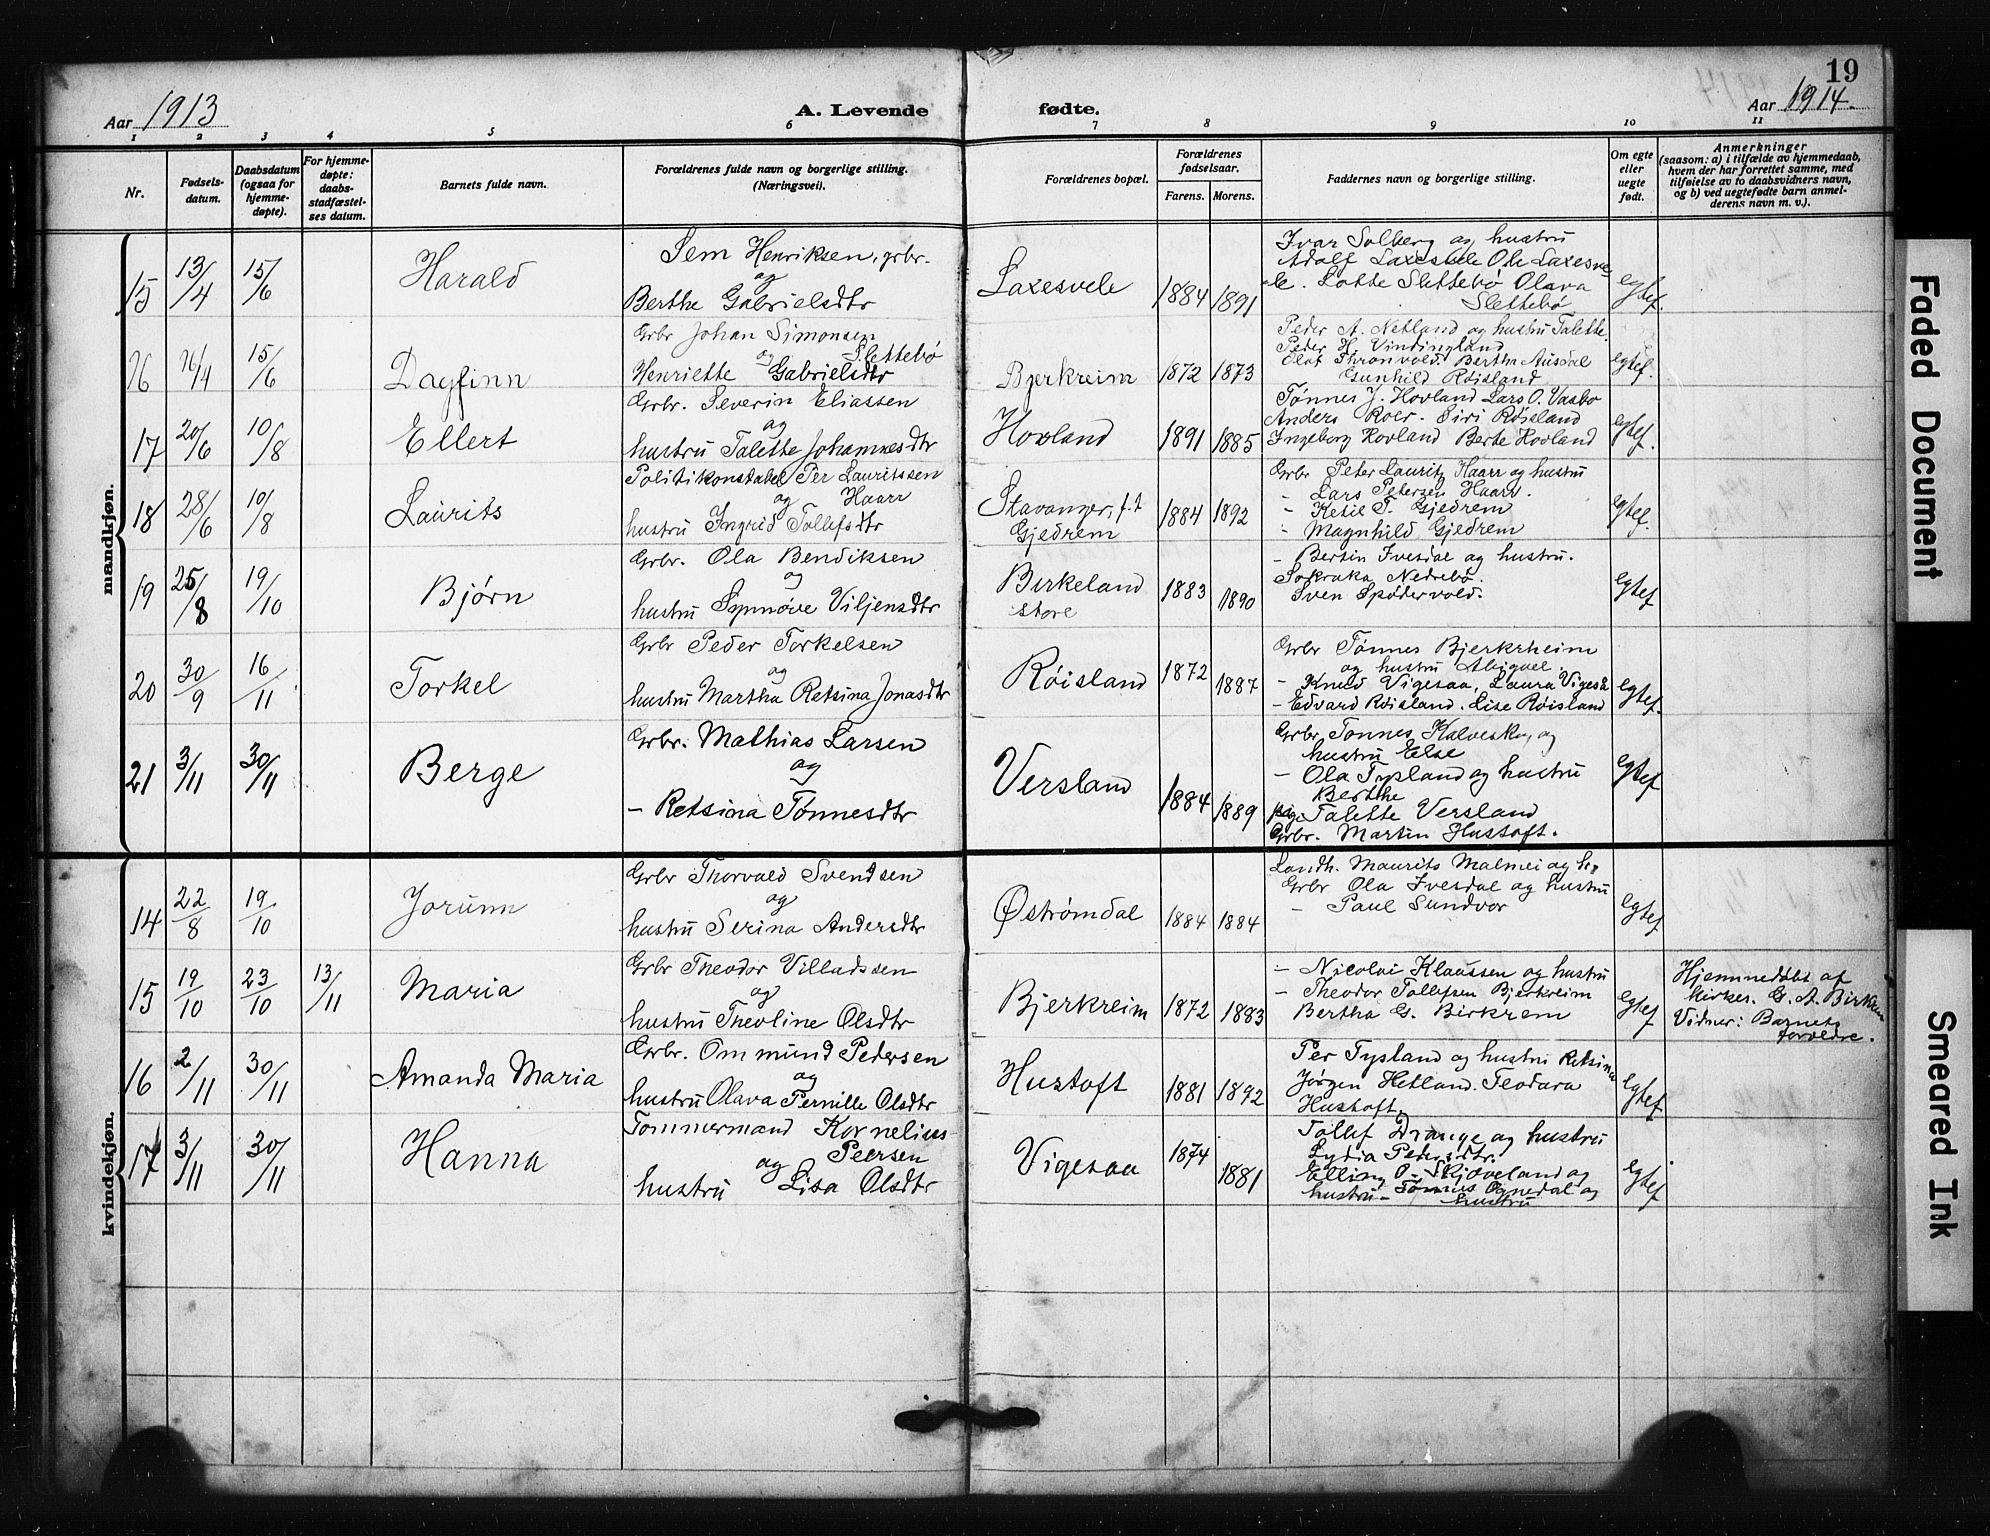 19
Aar 1913
A. Levende fødte.
Aar 1914.
1 2 3 4 5 6 7 8 9 10 11
Nr.
Fødsels-
datum.
Daabsdatum
(ogsaa for
hjemme-
døpte).
For hjemme-
døpte:
daabs-
stadfæstel-
ses datum.
Barnets fulde navn.
Forældrenes fulde navn og borgerlige stilling.
(Næringsvei).
Forældrenes bopæl.
Forældrenes
fødselsaar.
Farens. Morens.
Faddernes navn og borgerlige stilling.
Om egte
eller
uegte
født.
Anmerkninger
(saasom: a) i tilfælde av hjemmedaab,
hvem der har forrettet samme, med
tilføielse av to daabsvidners navn,
og b) ved uegtefødte barn anmel-
derens navn m. v.).
mandkjøn.
15 13/4 15/6 Harald
Sem Henriksen, grbr.
og
Berthe Gabrielsdtr
Laxesvele 1884 1891
Ivar Solberg og hustru
Adolf Laxesvele Ole Laxesve
le. Lotte Slettebø Olava
Slettebø
Egtef.
16 16/4 15/6 Dagfinn
Grbr Johan Simonsen
og Slettebø
Henriette Gabrielsdtr
Bjerkreim 1872 1873
Peder A. Netland og hustru Talette
Peder H. Vindingland
Olaf Thronvold. Bertha Ausdal
Gunhild Røisland
Egtef.
17 20/6 10/8 Ellert
Grbr. Severin Eliassen
og
hustru Talette Johannesdtr
Hovland 1891 1885
Tønnes J. Hovland Lars O. Vasbo
Anders Roer. Siri Røisland
Ingeborg Hovland Berte Hovland
Egtef.
18 28/6 10/8 Laurits
Politikonstabel Per Lauritssen
og Haarr
hustru Ingrid Tollefsdtr
Stavanger, f.t
Gjedrem 1884 1892
Grbr Peter Lauritz Haarr og hustru
- Lars Petersen Haarr.
- Ketil T. Gjedrem
- Magnhild Gjedrem
Egtef.
19 25/8 19/10 Bjørn
Grbr. Ola Bendiksen
og
hustru Synnøve Viljensdtr
Birkeland
store 1883 1890
- Bertin Ivesdal og hustru.
Nedrebø.
Sven Spødervold.
Egtef
20 30/9 16/11 Torkel
Grbr Peder Torkelsen
og
hustru Martha Retsina Jonasdtr
Røisland 1872 1887
Grbr Tønnes Bjerkrheim
og hustru Abigael.
- Knud Vigesaa, Laura Vigesa
- Edvard Røisland. Lise Røisland
Egtef.
21 3/11 30/11 Berge
Grbr. Mathias Larsen
og
- Retsina Tønnesdtr
Versland 1884 1889
Grbr Tønnes Kalveskey og
hustru Else
- Ola Tysland og hustru
Berthe
pige Talette Versland
Grbr. Martin Hustoft.
Egtef
kvindekjøn.
14 22/8 19/10 Jorunn
Grbr Thorvald Svendsen
og
hustru Serina Andersdtr
Østrømdal 1884 1884
Landh. Maurits Malmei og h.
Grbr Ola Ivesdal og hustru
- Paul Sundvor
Egtef
15 19/10 23/10 13/11 Maria
Grbr Theodor Villadssen
og
hustru Theoline Olsdtr
Bjerkreim 1872 1883
- Nicolai Klaussen og hustru
- Theodor Tollefsen Bjerkreim
Bertha G. Birkrem
Egtef
Hjemmedøbt af
kirkes. G. A. Birkrem
Vidner: Barnets
forældre.
16 2/11 30/11 Amanda Maria
Grbr. Ommund Pedersen
og
hustru Olava Pernille Olsdtr
Hustoft 1881 1892
Per Tysland og hustru Retsina
Jørgen Hetland. Teodara
Hustoft.
Egtef
17 3/11 30/11 Hanna
Tømmermand Kornelius
og Peersen
hustru Lisa Olsdtr
Vigesaa 1874 1881
Tollef Drange og hustru
Lydia Petersdtr.
Elling O. Skjæveland og
hustru - Tønnes Ognedal og
hustru
Egtef
Faded Document
Smeared Ink